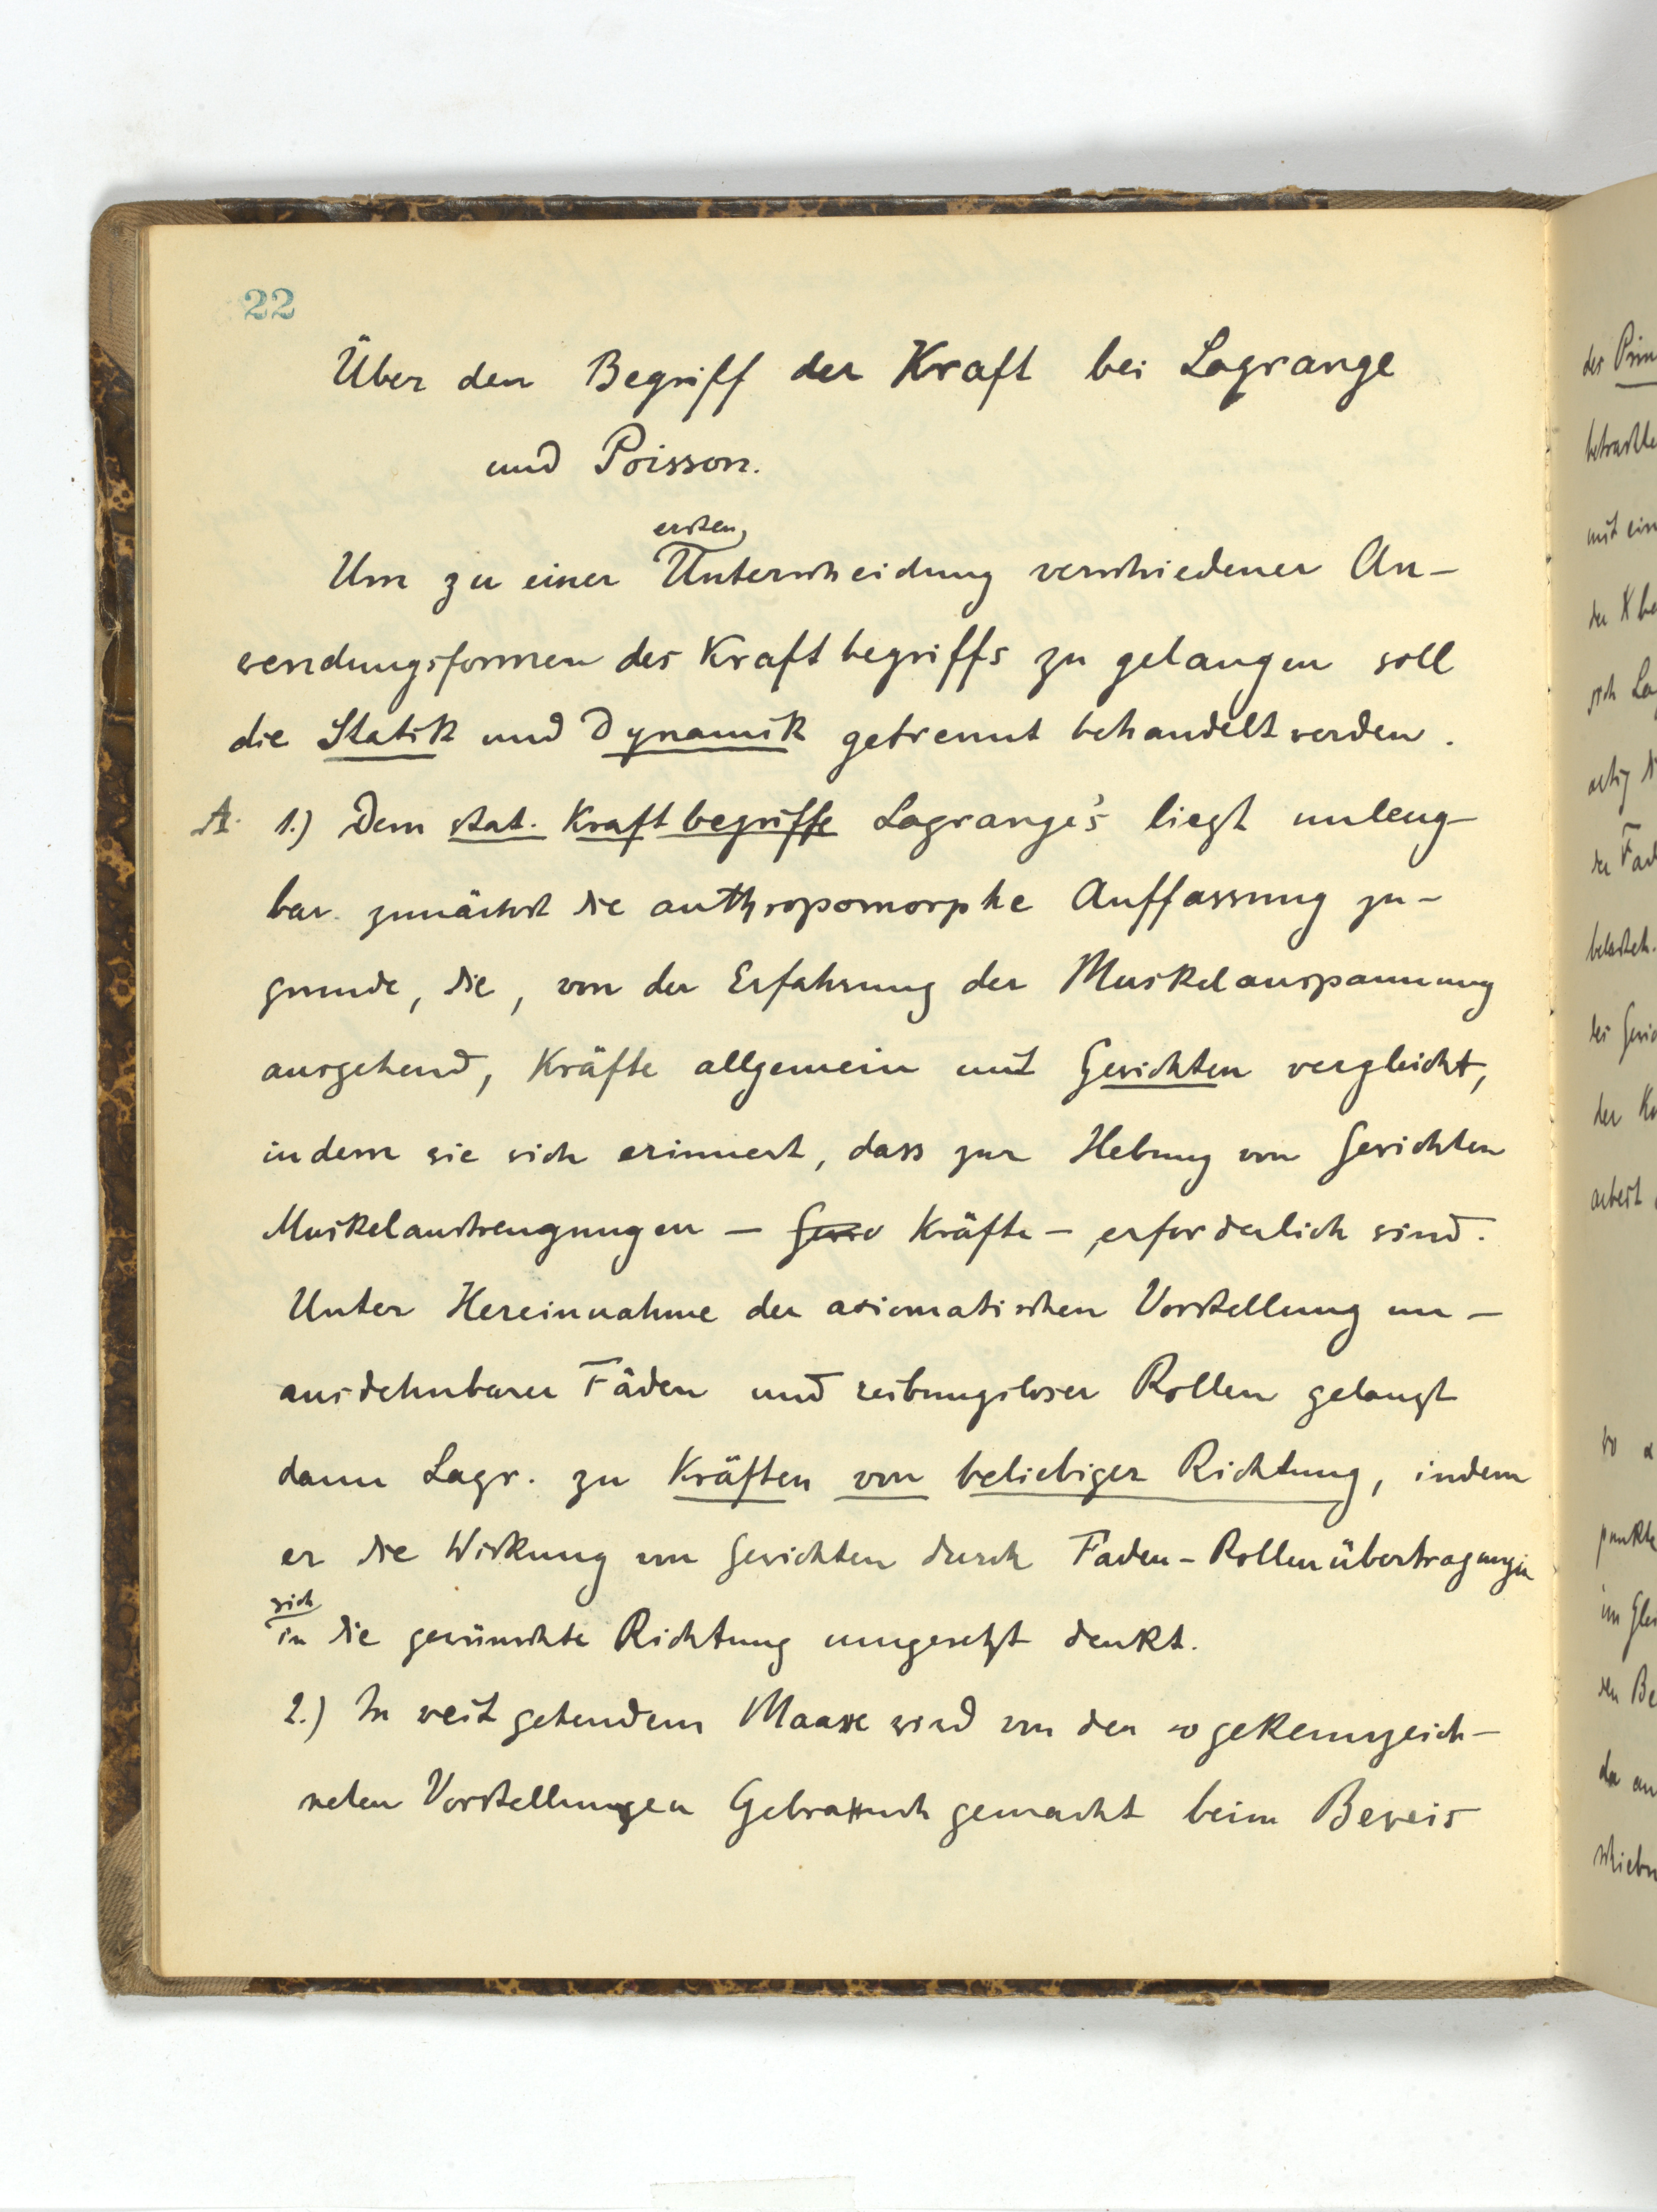 22
Über den Begriff der Kraft bei Lagrange
und Poisson.
ersten
Um zu einer Unterscheidung verschiedener An-
wendungsformen des Kraftbegriffs zu gelangen soll
die Statik und Dynamik getrennt behandelt werden.
A. 1.) Dem stat. Kraftbegriffe Lagrange's liegt unleug-
bar zunächst die anthropomorphe Auffassung zu-
grunde, die, von der Erfahrung der Muskelanspannung
ausgehend, Kräfte allgemein mit Gewichten vergleicht,
indem sie sich erinnert, dass zur Hebung von Gewichten
Muskelanstrengungen – Kräfte – erforderlich sind.
Unter Hereinnahme der axiomatischen Vorstellung un-
ausdehnbarer Fäden und reibungsloser Rollen gelangt
dann Lagr. zu Kräften von beliebiger Richtung, indem
er die Wirkung von Gewichten durch Faden-Rollenübertragungen
sich
in die gewünschte Richtung umgesetzt denkt.
2.) In weitgehendem Maasse wird von den so gekennzeich-
neten Vorstellungen Gebrauch gemacht beim Beweis
des
mit
der
sich
artig
der
des
der
arbeit
wo
im
den
da